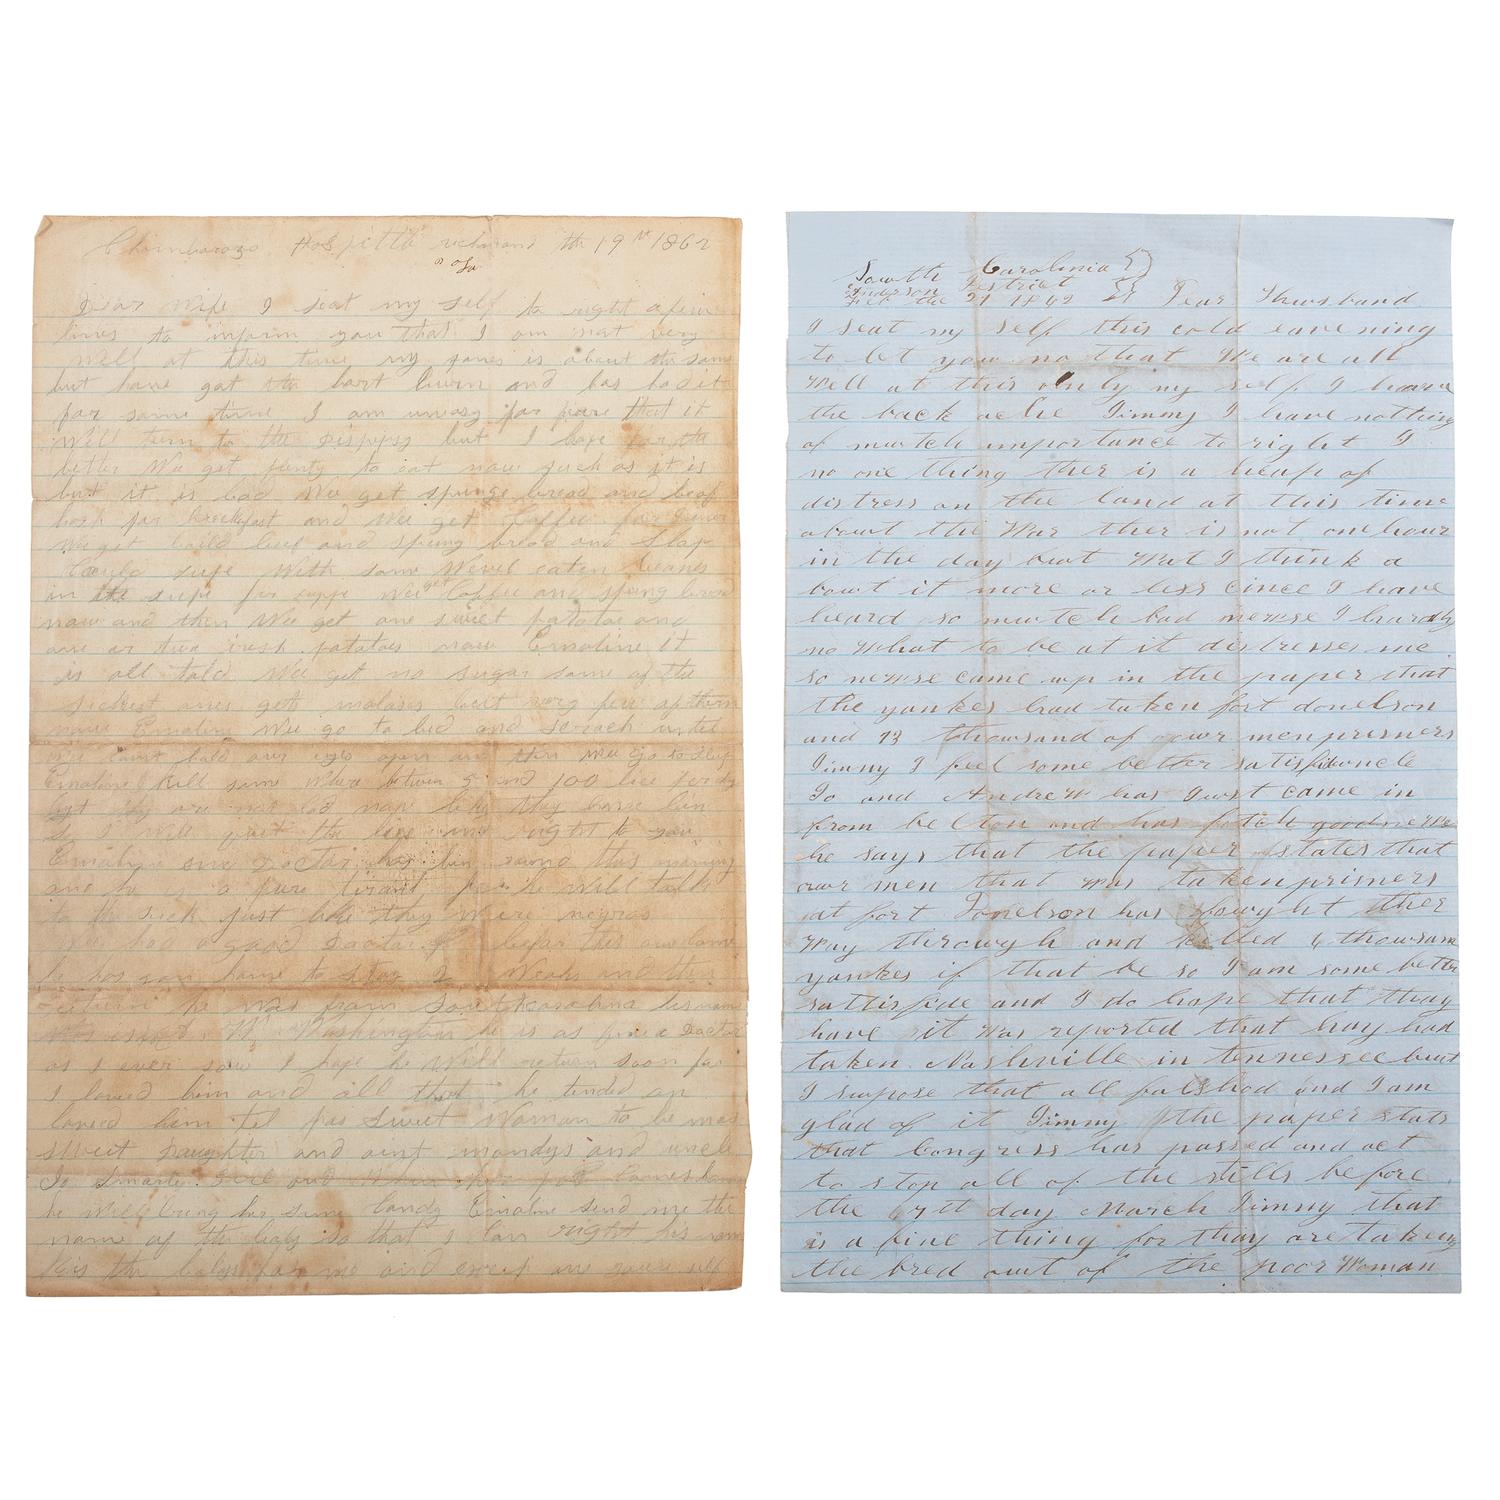 Chimbarozo Hospittle richmond the 19th 1862
Dear Wife I seat my self to right a few
lines to inform you that I am not very
Well at this time my is about the same
but have got the hart burn and has had it
for some time I am uneasy for feare that it
Will turn to the Dispepsy but I hope for the
better We get plenty to eat now such as it is
but it is bad We get spunge bread and beaf
hash for breckfast and We get Coffee for Diner
We get boild beef and spung bread and slap
supe With some Wevel eaten beanes
in the supe for suppe Wee get Coffee and spung bread
now and then Wee get one sweet potatoe and
one or two irish potatoes now Emaline it
is all told Wee get no sugar some of the
sickest ones get molases but very few of them
now Emaline Wee go to bed and scrach untel
Wee cant hold our open and then Wee go to sleep
Emaline I kill some Where betwen 5 and 100 lice per day
but they are not as bad now like they have bin
so I Will quit the lice and right to you
Emaline our Doctor has bin round this morning
and he is a pure tirant for he Will talk
to the sick just like they Were negros
Wee had a good Doctor before this one came
he has gon home to stay 2 Weaks and then
return he Was from South Carolina his name
Washington he is as fine a Doctor
as I ever saw I hope he Will return soon for
I loved him and all that he tended on
loved him tel sweet Woman to be mas
sweet Daughter and aint mandys and uncle
Jo Smarte Girl and When
he Will bring her some Candy Emaline send me the
name of the baby so that I can right his name
kis the babys for me and except one youre self
South Carolina
Anderson Destrict
Feb the 21 1862 Dear Huwsband
I seat my self this cold eavening
to let you no that We are all
Well at this only my self I have
the back ache Jimmy I have nothing
of mutch importance to right I
no one thing ther is a heap of
distress on the land at this time
about the War ther is not one hour
in the day but What I think a
bowt it more or less cince I have
heard so mutch bad newse I hardly
no What to be at it distresses me
so newse came up in the paper that
the yankes had taken fort donelson
and 13 thousand of owr men prisners
Jimmy I feel some better satisfid uncle
Jo and Andrew has Just came in
from belton and has fotch good newse
he says that the paper states that
owr men that Was taken prisners
at fort Donelson has fowght ther
Way throwgh and killed 6 thowsan
yankes if that be so I am some better
sattisfide and I do hope that thay
have it Was reported that thay had
taken Nashville in tennessee but
I suwpose that all falshod and I am
glad of it Jimmy the paper stats
that Congress has passed and act
to stop all of the stills before
the day March Jimmy that
is a fine thing for thay are taking
the bred owt of the poor Woman